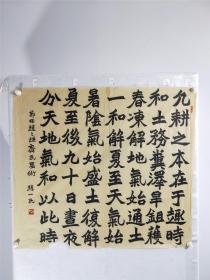 凡耕之本在于趣時
和土務糞澤早鉏穫
春凍解地氣始通土
一和解夏至天氣始
暑陰氣始盛土復解
夏至後九十日晝夜
分天地氣和以此時